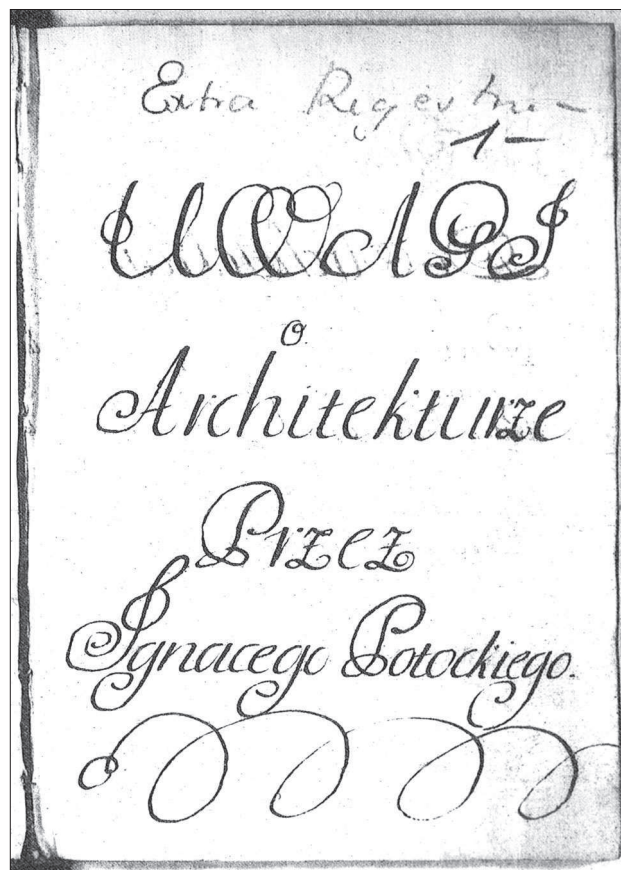 Extra
1-
UWAGI
o
Architekturze
Przez
Ignacego Potockiego.